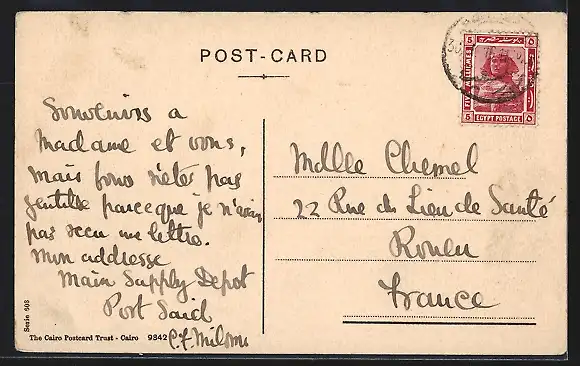 POST-CARD
5 5
FIVE MILLIEMES
EGYPT POSTAGE
Souvenirs a
Madame et vous,
Mais vous n'etes pas
gentille parceque je n'avais
pas recu une lettre.
Mon addresse
Main Supply Depot
Port Said
C.F.
Mdlle Chemel
22 Rue du Lieu de Santé
Rouen
France
Serie 608
The Cairo Postcard Trust - Cairo 9842